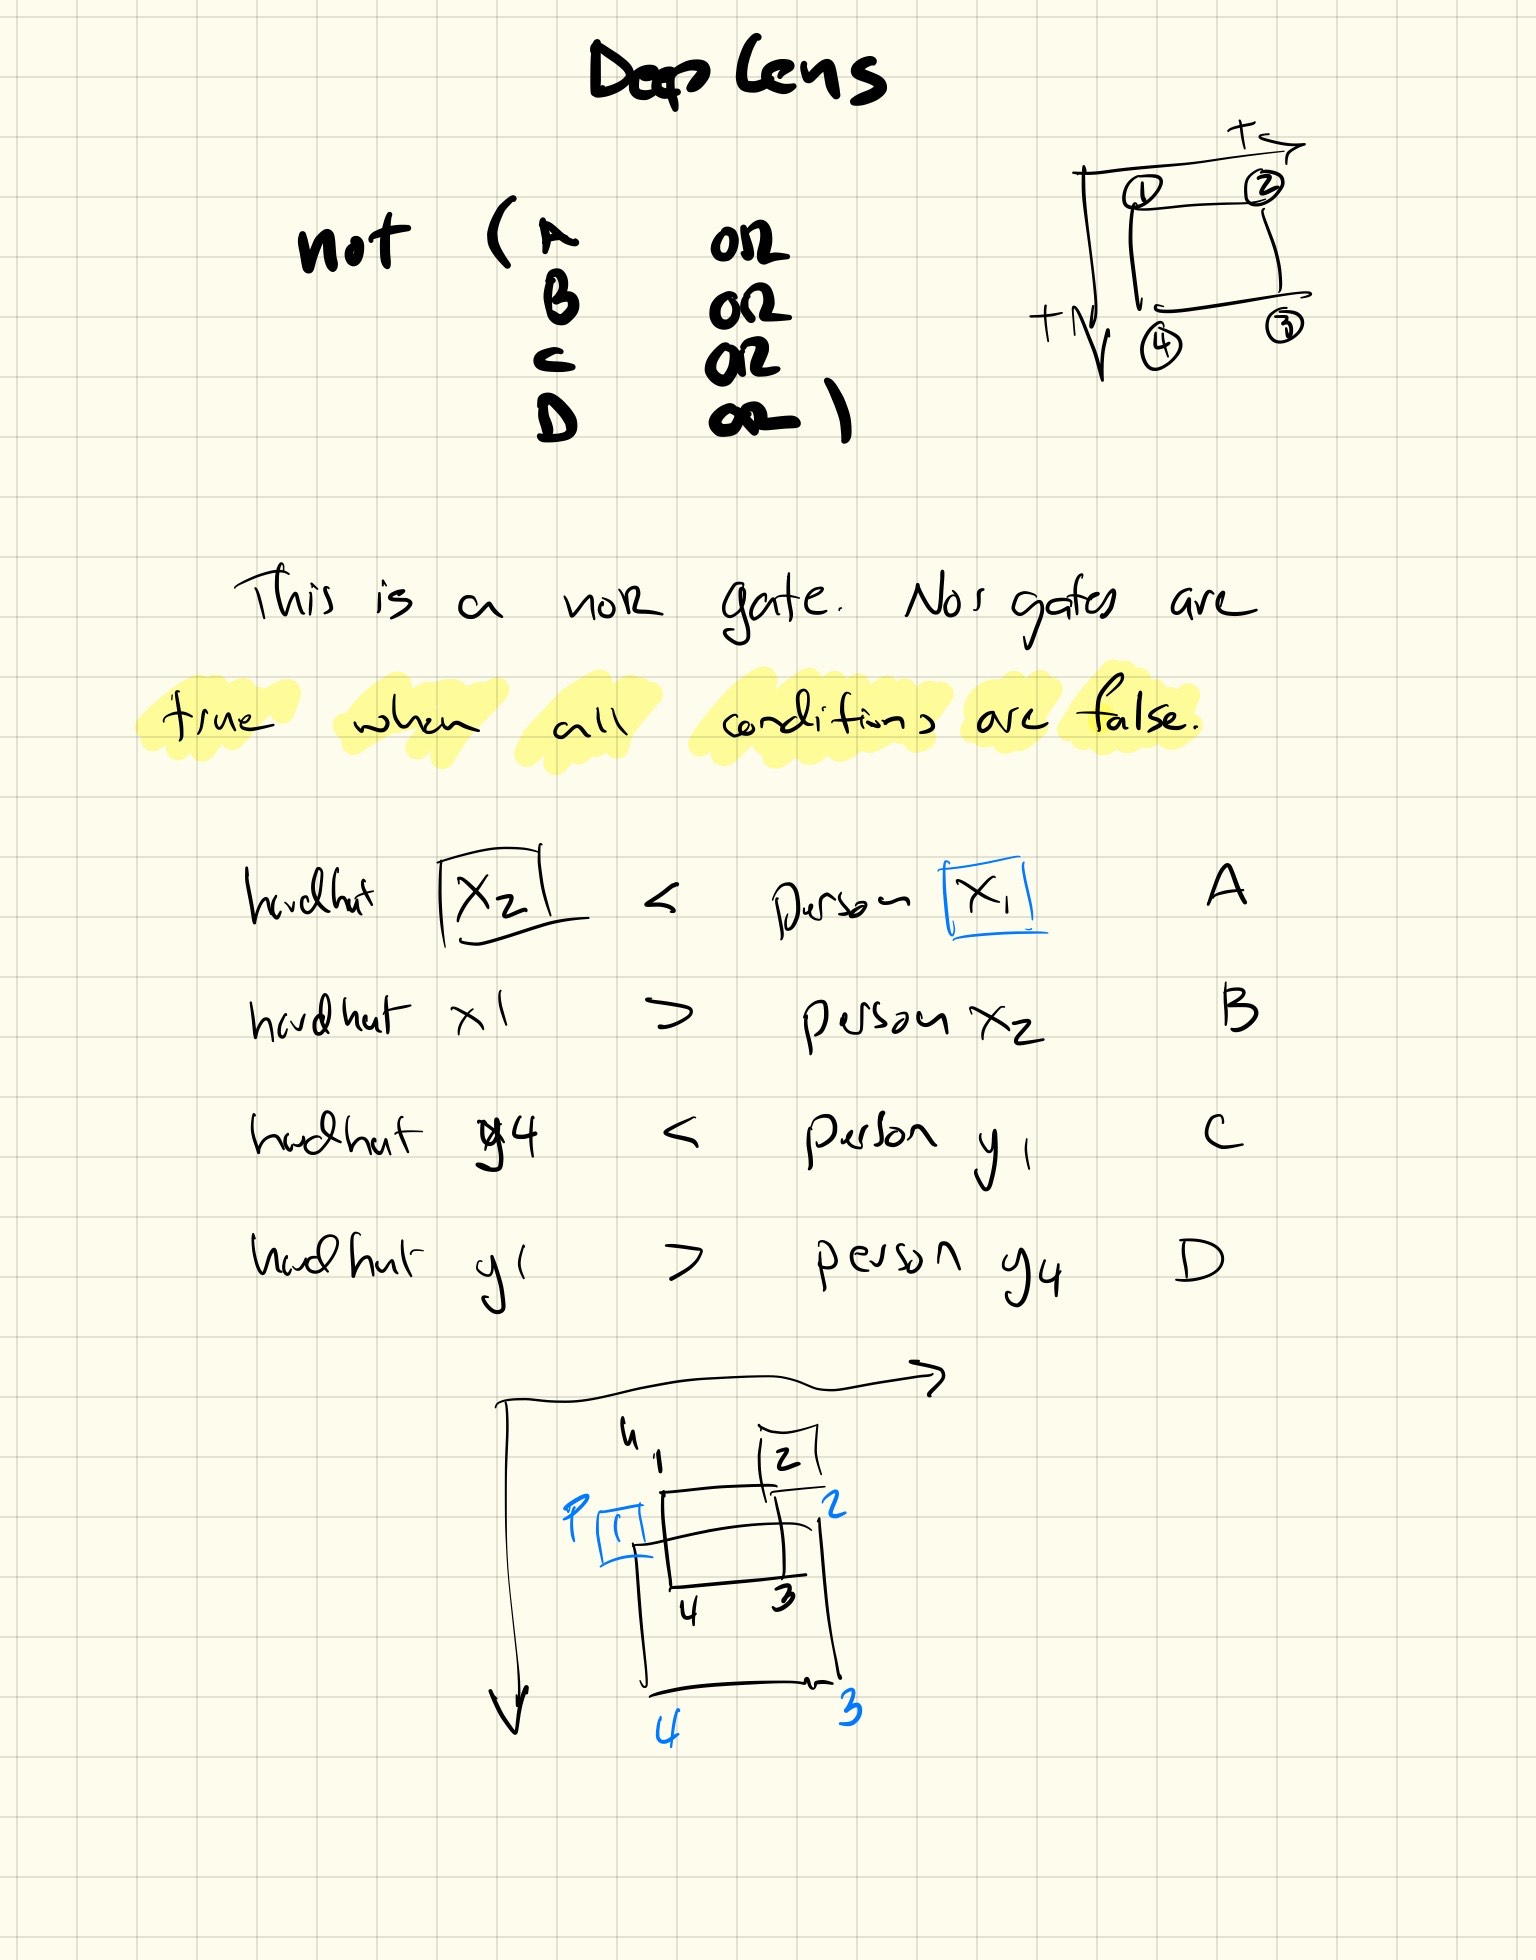 Deep Lens
+
① ②
not (A OR
B OR
C OR
D OR)
+
④ ③
This is a NOR gate. Nor gates are
true when all conditions are false.
hardhat X2 < person X1 A
hardhat x1 > person X2 B
hardhat y4 < person y1 C
hardhat y1 > person y4 D
h
1 2
P 1 2
4 3
4 3